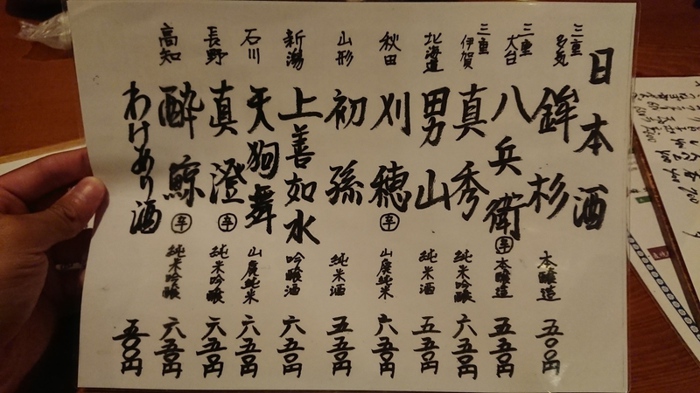 日本酒
三重 多気 鉾杉 本醸造 五〇〇円
三重 大台 八兵衛 辛 本醸造 五五〇円
三重 伊賀 真秀 純米吟醸 六五〇円
北海道 男山 純米酒 五五〇円
秋田 刈穂 辛 山廃純米 六五〇円
山形 初孫 純米酒 五五〇円
新潟 上善如水 吟醸酒 六五〇円
石川 天狗舞 山廃純米 六五〇円
長野 真澄 辛 純米吟醸 六五〇円
高知 酔鯨 辛 純米吟醸 六五〇円
わけあり酒 五〇〇円